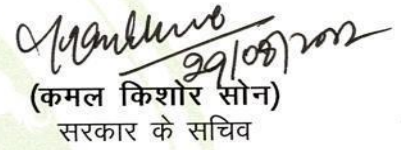 29/08/2022
(कमल किशोर सोन)
सरकार के सचिव